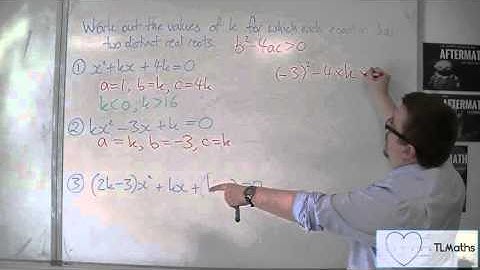 Work out the values of k for which each equation has
two distinct real roots. b²-4ac>0
① x²+kx+4k=0
a=1, b=k, c=4k
k<0, k>16
(-3)²-4×k×
② kx²-3x+k=0
a=k, b=-3, c=k
③ (2k-3)x²+kx+(k =0
AFTERMATH
AFTERMATH
TLMaths